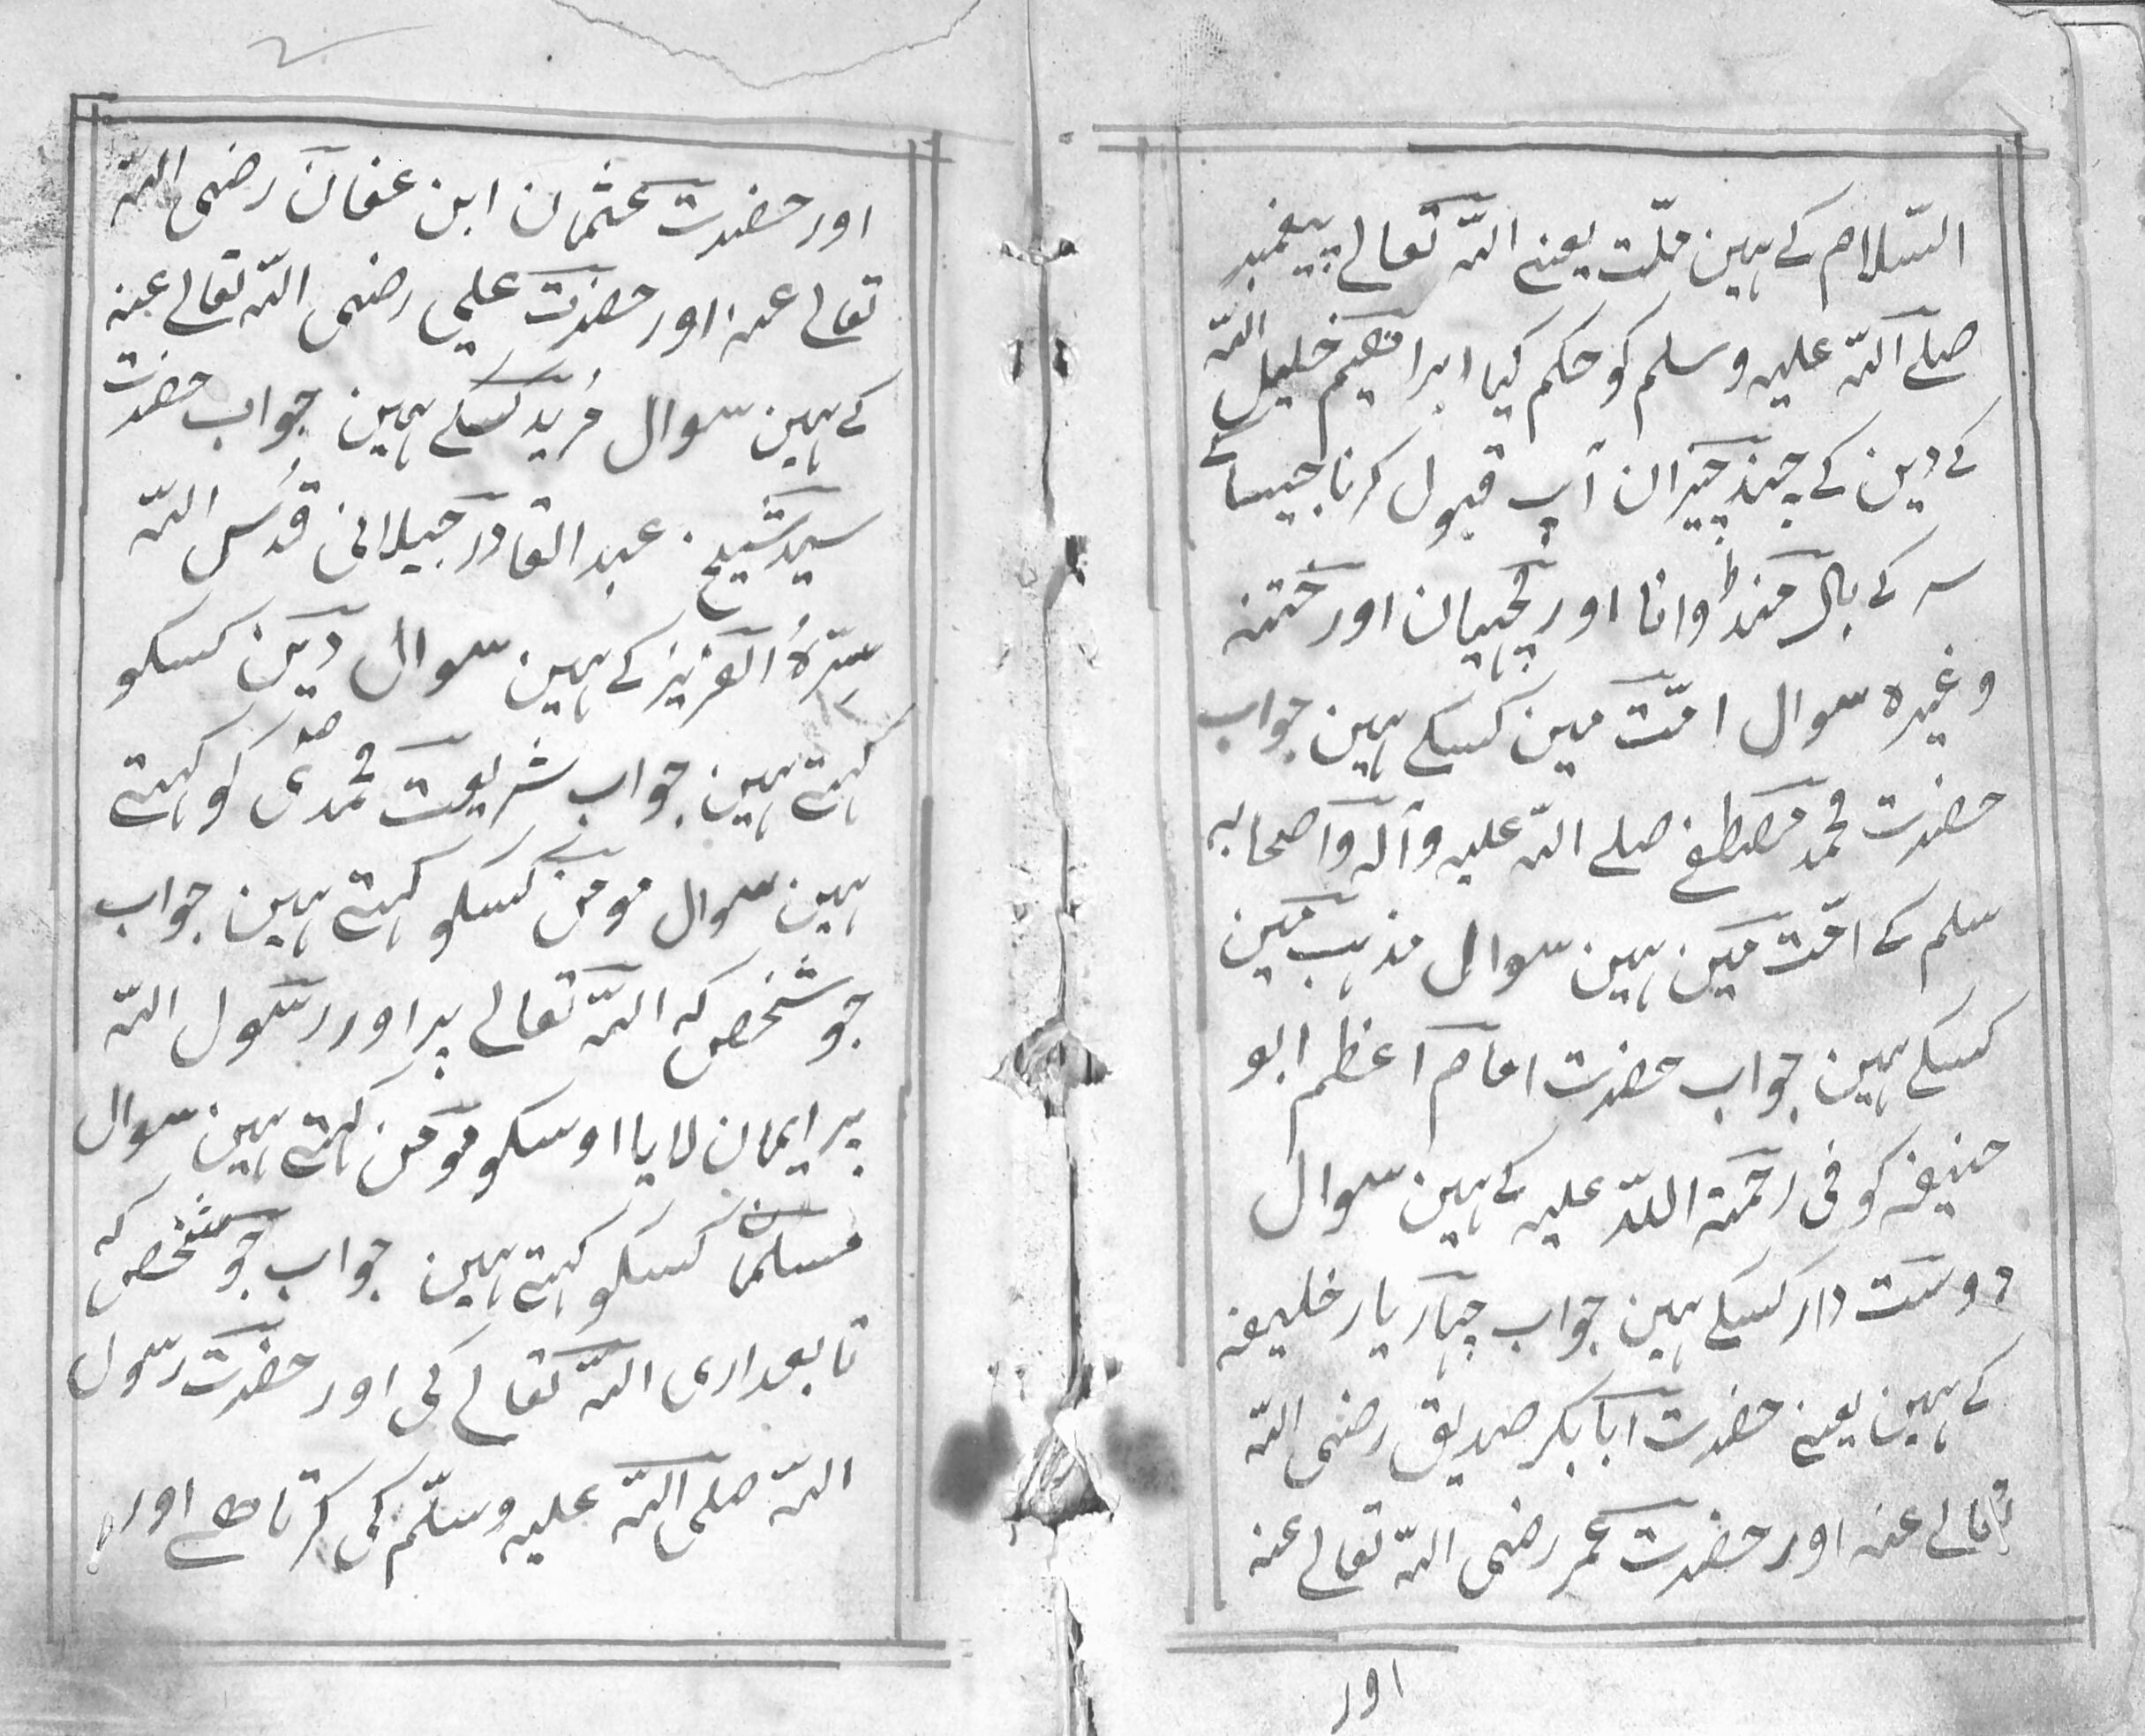 السّلام کے ہین ملّت یعنے اللّہ تعالے پیغمبر
صلے اللّہ علیہ وسلم کو حکم کیا ابراھیم خلیل اللّہ
کے دین کے چند چیزان آپ قبول کرنا جیسا کے
سر کے بال منڈوانا اور مچھیان اور ختنہ
وغیرہ سوال امّت مین کسکے ہین جواب
حضرت محمد مصطفے صلے اللّہ علیہ وآلہ واصحابہ
سلم کے امّت مین ہین سوال مذہب مین
کسکے ہین جواب حضرت امام اعظم ابو
حنیفہ کوفی رحمۃ اللّہ علیہ کے ہین سوال
دوست دار کسکے ہین جواب چہار یار خلیفہ
کے ہین یعنے حضرت ابابکر صدیق رضی اللّہ
تعالے عنہ اور حضرت عمر رضی اللّہ تعالے عنہ
اور
۲
اور حضرت عثمان ابن عفان رضی اللّہ
تعالے عنہ اور حضرت علی رضی اللّہ تعالے عنہ
کے ہین سوال مُرید کسکے ہین جواب حضرت
سید شیخ عبد القادر جیلانی قدّس اللّہ
سِرّہُ العزیز کے ہین سوال دین کسکو
کہتے ہین جواب شریعت محمدی کو کہتے
ہین سوال مومن کسکو کہتے ہین جواب
جو شخص کہ اللّہ تعالے پر اور رسول اللّہ
پر ایمان لایا اوسکو مومن کہتے ہین سوال
مسلمان کسکو کہتے ہین جواب جو شخص کہ
تابعداری اللّہ تعالے کی اور حضرت رسول
اللّہ صلی اللّہ علیہ وسلّم کی کرتا ھے اور